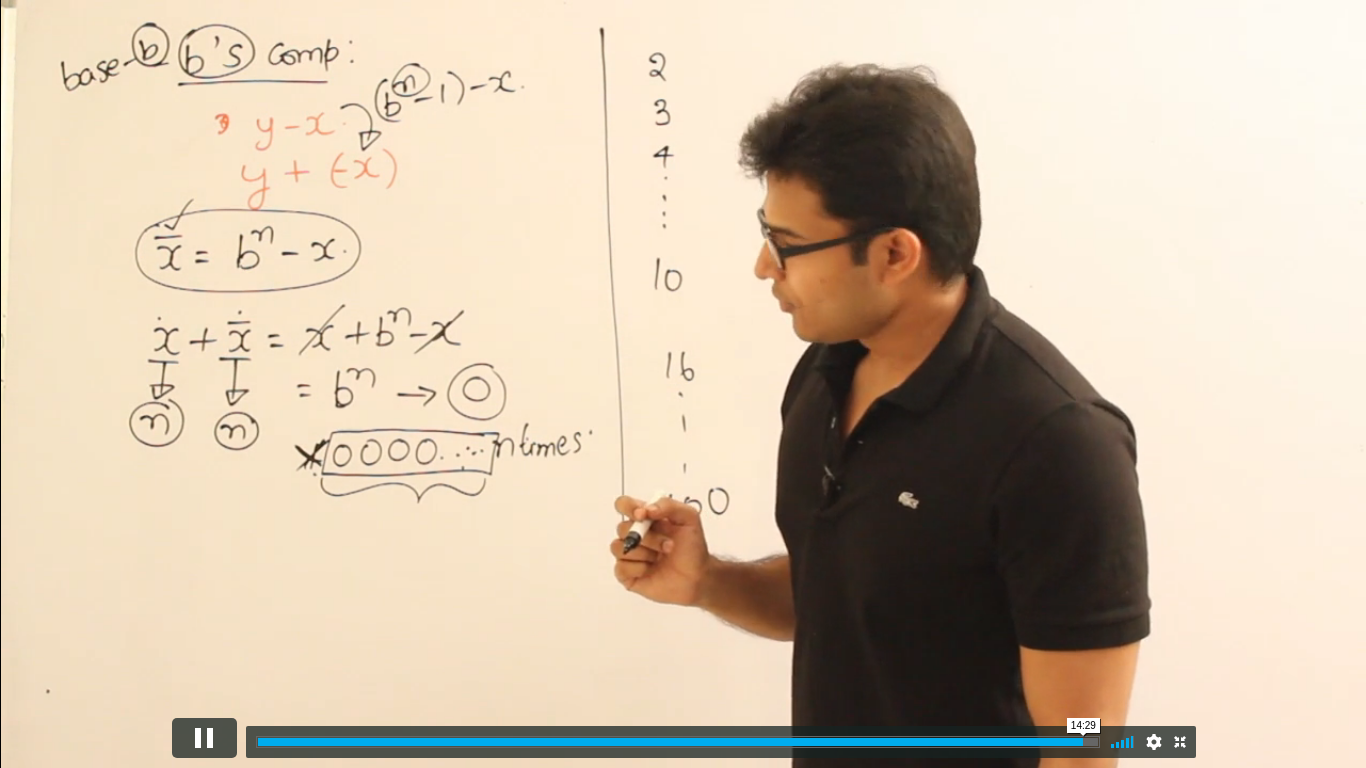 base-b b's comp:
(bⁿ-1)-x.
y-x.
y + (-x)
x̿ = bⁿ - x.
x + x̿ = x + bⁿ - x
= bⁿ → 0
n n
0000..... n times.
2
3
4
10
16
14:29